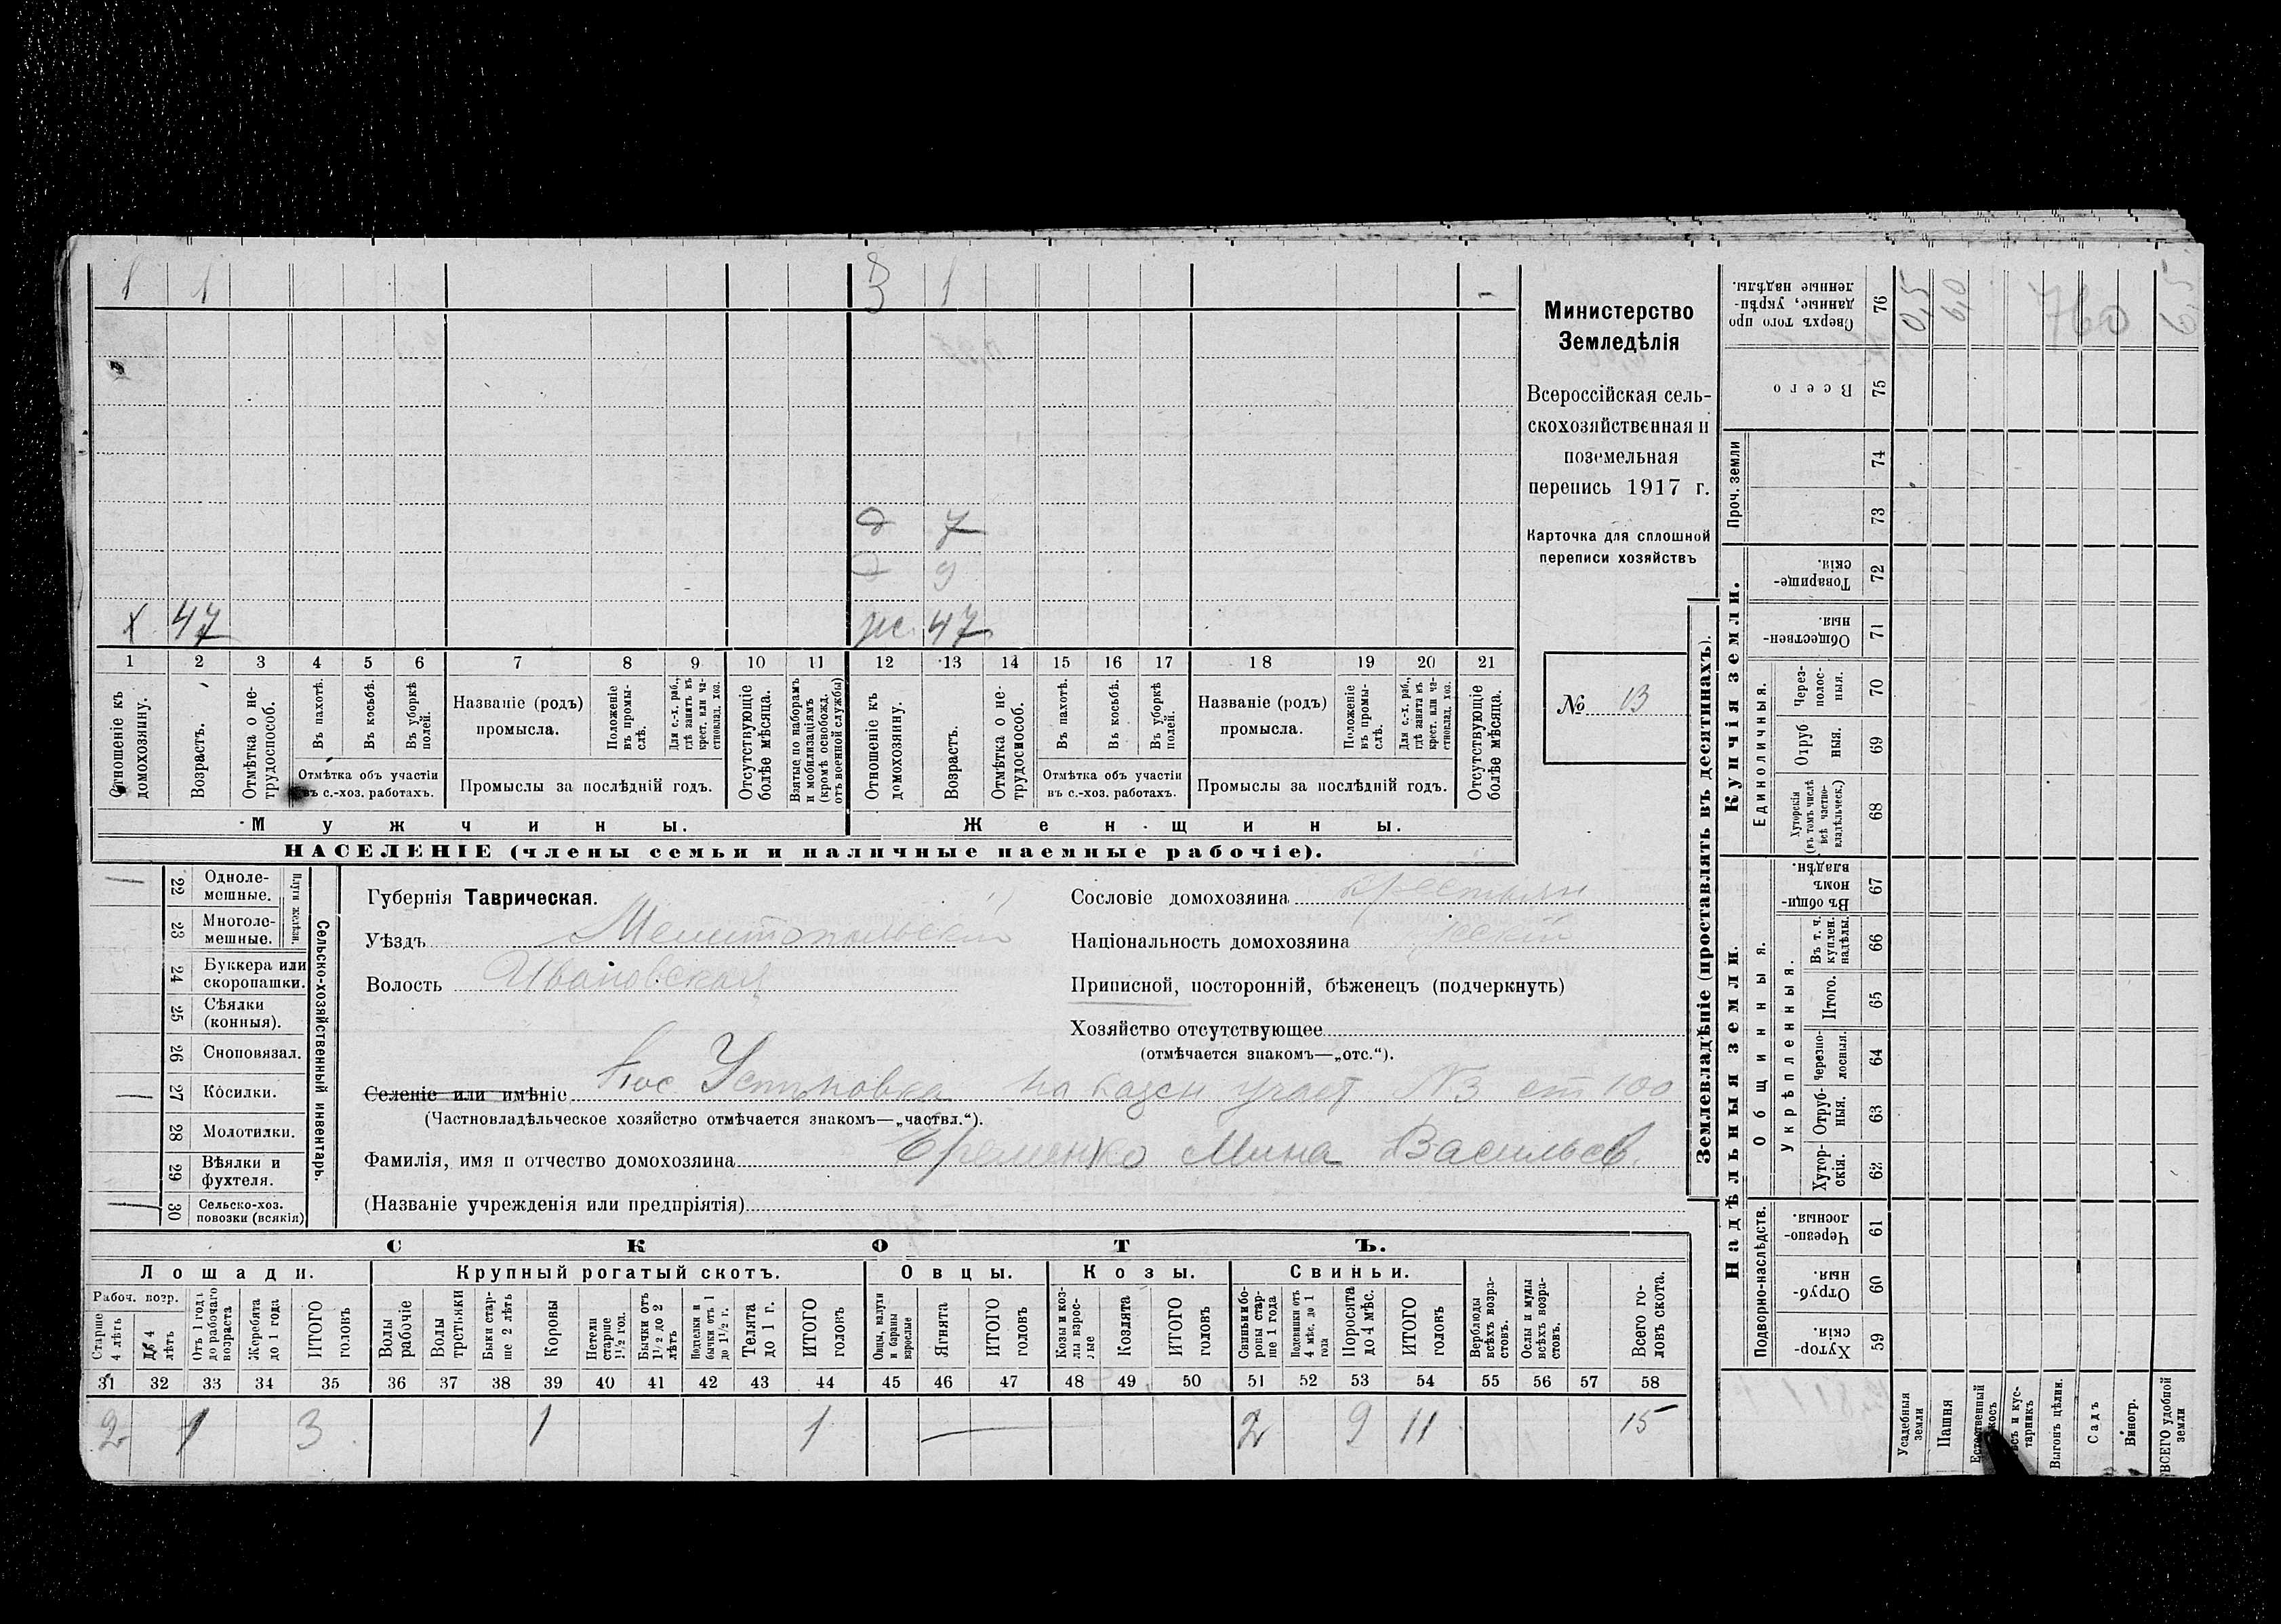 1 1 3 1 -
д 7
д 9
х 47 ж 47
1 2 3 4 5 6 7 8 9 10 11 12 13 14 15 16 17 18 19 20 21
Отношеніе къ домохозяину.
Возрастъ.
Отмѣтка о не-трудоспособ.
Въ пахотѣ.
Въ косьбѣ.
Въ уборкѣ полей.
Отмѣтка объ участіи
въ с.-хоз. работахъ.
Названіе (родъ)
промысла.
Положеніе въ промыслѣ.
Для с.-х. раб., гдѣ занятъ въ крест. или частновлад. хоз.
Промыслы за послѣдній годъ.
Отсутствующіе болѣе мѣсяца.
Взятые по наборамъ и мобилизаціямъ (кромѣ освобожд. отъ военной службы)
Отношеніе къ домохозяину.
Возрастъ.
Отмѣтка о не-трудоспособ.
Въ пахотѣ.
Въ косьбѣ.
Въ уборкѣ полей.
Отмѣтка объ участіи
въ с.-хоз. работахъ.
Названіе (родъ)
промысла.
Положеніе въ промыслѣ.
Для с.-х. раб., гдѣ занята въ крест. или частновлад. хоз.
Промыслы за послѣдній годъ.
Отсутствующіе болѣе мѣсяца.
Мужчины. Женщины.
НАСЕЛЕНІЕ (члены семьи и наличные наемные рабочіе).
Министерство
Земледѣлія
Всероссійская сель-
скохозяйственная и
поземельная
перепись 1917 г.
Карточка для сплошной
переписи хозяйствъ
№ 13
22 Одноле-мешные.
23 Многоле-мешные.
Плуги желѣзн.
24 Буккера или скоропашки.
25 Сѣялки (конныя).
26 Сноповязал.
27 Косилки.
28 Молотилки.
29 Вѣялки и фухтеля.
30 Сельско-хоз. повозки (всякія)
Сельско-хозяйственный инвентарь.
Губернія Таврическая.
Уѣздъ Мелитопольскій
Волость Ивановская
Сословіе домохозяина крестьян
Національность домохозяина
Приписной, посторонній, бѣженецъ (подчеркнуть)
Хозяйство отсутствующее
(отмѣчается знакомъ—„отс.“).
Селеніе или имѣніе Пос. Устиновка на казен участ. №3 ст 100
(Частновладѣльческое хозяйство отмѣчается знакомъ—„частвл.“).
Фамилія, имя и отчество домохозяина Еременко Мина Васильев.
(Названіе учрежденія или предпріятія)
СКОТЪ.
Лошади. Крупный рогатый скотъ. Овцы. Козы. Свиньи.
Рабоч. возр.
Старше 4 лѣтъ
До 4 лѣтъ
Отъ 1 года до рабочаго возраста
Жеребята до 1 года
ИТОГО головъ
Волы рабочіе
Волы третьяки
Быки старше 2 лѣтъ
Коровы
Нетели старше 1½ год.
Бычки отъ 1½ до 2 лѣтъ
Подтелки и бычки отъ 1 до 1½ г.
Телята до 1 г.
ИТОГО головъ
Овцы, валухи и бараны взрослые
Ягнята
ИТОГО головъ
Козы и козлы взрослые
Козлята
ИТОГО головъ
Свиньи и боровы старше 1 года
Подсвинки отъ 4 мѣс. до 1 года
Поросята до 4 мѣс.
ИТОГО головъ
Верблюды всѣхъ возрастовъ.
Ослы и мулы всѣхъ возрастовъ.
Всего головъ скота.
31 32 33 34 35 36 37 38 39 40 41 42 43 44 45 46 47 48 49 50 51 52 53 54 55 56 57 58
2 1 3 1 1 — 2 9 11 15
Землевладѣніе (проставлять въ десятинахъ).
Надѣльныя земли. Купчія земли.
Подворно-наслѣдств.
Общинныя.
Укрѣпленныя.
Единоличныя.
Проч. земли
Хутор-скія. 59
Отруб-ныя. 60
Черезпо-лосныя. 61
Хутор-скія. 62
Отруб-ныя. 63
Черезпо-лосныя. 64
Итого. 65
Въ т. ч. куплен. надѣлы. 66
Въ общин-номъ владѣн. 67
Хуторскія (въ томъ числѣ всѣ частно-владѣльческ.) 68
Отруб ныя. 69
Через-полос-ныя. 70
Обществен-ныя. 71
Товарище-скія. 72
73
74
Всего 75
Сверхъ того про данные, укрѣп-ленные надѣлы. 76
Усадебныя земли
Пашня
Естественный
тарникъ
Выгонъ цѣлин.
Садъ
Виногр.
ВСЕГО удобной земли
0,5 6,0 760 6,5